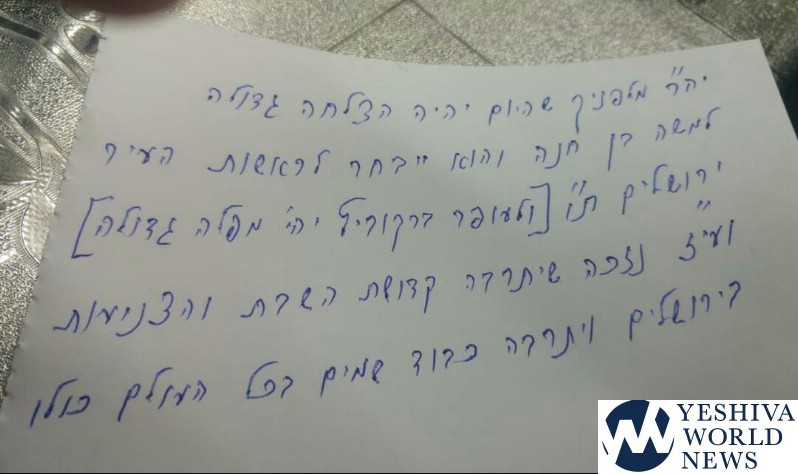 יה"ר מלפניך שהיום יהיה הצלחה גדולה
למשה בן חנה והוא ייבחר לראשות העיר
ירושלים ת"ו [ולעופר ברקוביץ יהי' מפלה גדולה]
ועי"ז נזכה שיתרבה קדושת השבת והצניעות
בירושלים ויתרבה כבוד שמים בכל העולם כולו
YESHIVA
WORLD
NEWS